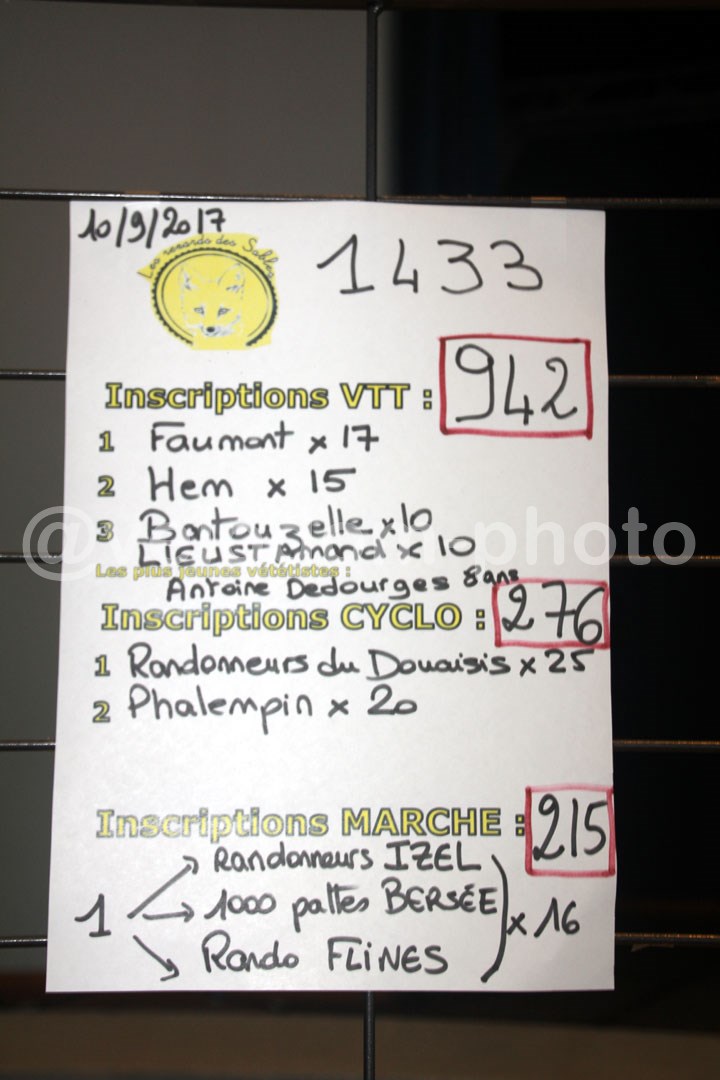 10/9/2017
Les renards des Sables
1433
Inscriptions VTT : 942
1 Faumont x 17
2 Hem x 15
3 Bantouzelle x 10
LIEU ST Amand x 10
Les plus jeunes vététistes :
Antoine Dedourges 8 ans
Inscriptions CYCLO : 276
1 Randonneurs du Douaisis x 25
2 Phalempin x 20
Inscriptions MARCHE : 215
Randonneurs IZEL
1 1000 pattes BERSÉE x 16
Rando FLiNES